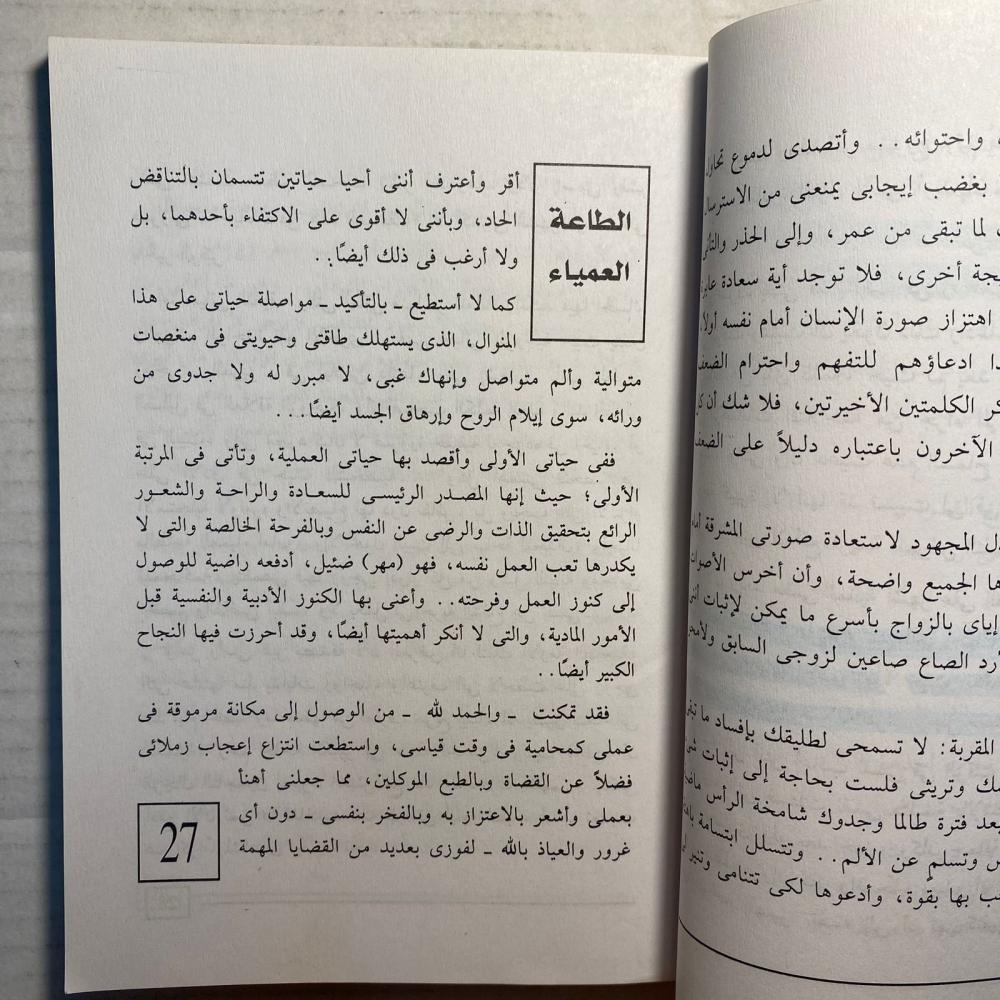 ، واحتوائه.. وأتصدى لدموع تحاول
بغضب إيجابى يمنعنى من الاسترسا
لما تبقى من عمر، وإلى الحذر والتأنى
يجة أخرى، فلا توجد أية سعادة
اهتزاز صورة الإنسان أمام نفسه أولاً،
ا ادعاؤهم للتفهم واحترام الضعف
كر الكلمتين الأخيرتين، فلا شك أن كل
الآخرون باعتباره دليلاً على الضعف
ل المجهود لاستعادة صورتى المشرقة أمام
ها الجميع واضحة، وأن أخرس الأصوات
إياى بالزواج بأسرع ما يمكن لإثبات أننى
أرد الصاع صاعين لزوجى السابق ولأمحو
المقربة: لا تسمحى لطليقك بإفساد ما تبقى
ك وتريثى فلست بحاجة إلى إثبات شىء
بعد فترة طالما وجدوك شامخة الرأس
س وتسلم عن الألم.. وتتسلل ابتسامة
ب بها بقوة، وأدعوها لكى تتنامى وتنير
الطاعة
العمياء
أقر وأعترف أننى أحيا حياتين تتسمان بالتناقض
الحاد، وبأننى لا أقوى على الاكتفاء بأحدهما، بل
ولا أرغب فى ذلك أيضًا..
كما لا أستطيع ـ بالتأكيد ـ مواصلة حياتى على هذا
المنوال، الذى يستهلك طاقتى وحيويتى فى منغصات
متوالية وألم متواصل وإنهاك غبى، لا مبرر له ولا جدوى من
ورائه، سوى إيلام الروح وإرهاق الجسد أيضًا...
ففى حياتى الأولى وأقصد بها حياتى العملية، وتأتى فى المرتبة
الأولى؛ حيث إنها المصدر الرئيسى للسعادة والراحة والشعور
الرائع بتحقيق الذات والرضى عن النفس وبالفرحة الخالصة والتى لا
يكدرها تعب العمل نفسه، فهو (مهر) ضئيل، أدفعه راضية للوصول
إلى كنوز العمل وفرحته.. وأعنى بها الكنوز الأدبية والنفسية قبل
الأمور المادية، والتى لا أنكر أهميتها أيضًا، وقد أحرزت فيها النجاح
الكبير أيضًا..
فقد تمكنت ـ والحمد لله ـ من الوصول إلى مكانة مرموقة فى
عملى كمحامية فى وقت قياسى، واستطعت انتزاع إعجاب زملائى
فضلاً عن القضاة وبالطبع الموكلين، مما جعلنى أهنأ
بعملى وأشعر بالاعتزاز به وبالفخر بنفسى ـ دون أى
غرور والعياذ بالله ـ لفوزى بعديد من القضايا المهمة
27